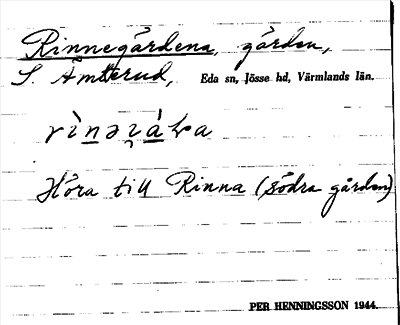 Rinnegårdena, gården,
S. Åmterud, Eda sn, Jösse hd, Värmlands län.
Höra till Rinna (södra gården)
PER HENNINGSSON 1944.